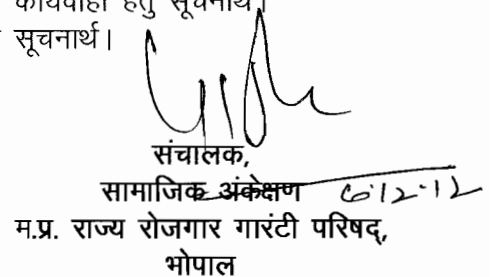 कार्यवाही हेतु सूचनार्थ।
सूचनार्थ।
संचालक,
सामाजिक अंकेक्षण 6.12.12
म.प्र. राज्य रोजगार गारंटी परिषद्,
भोपाल